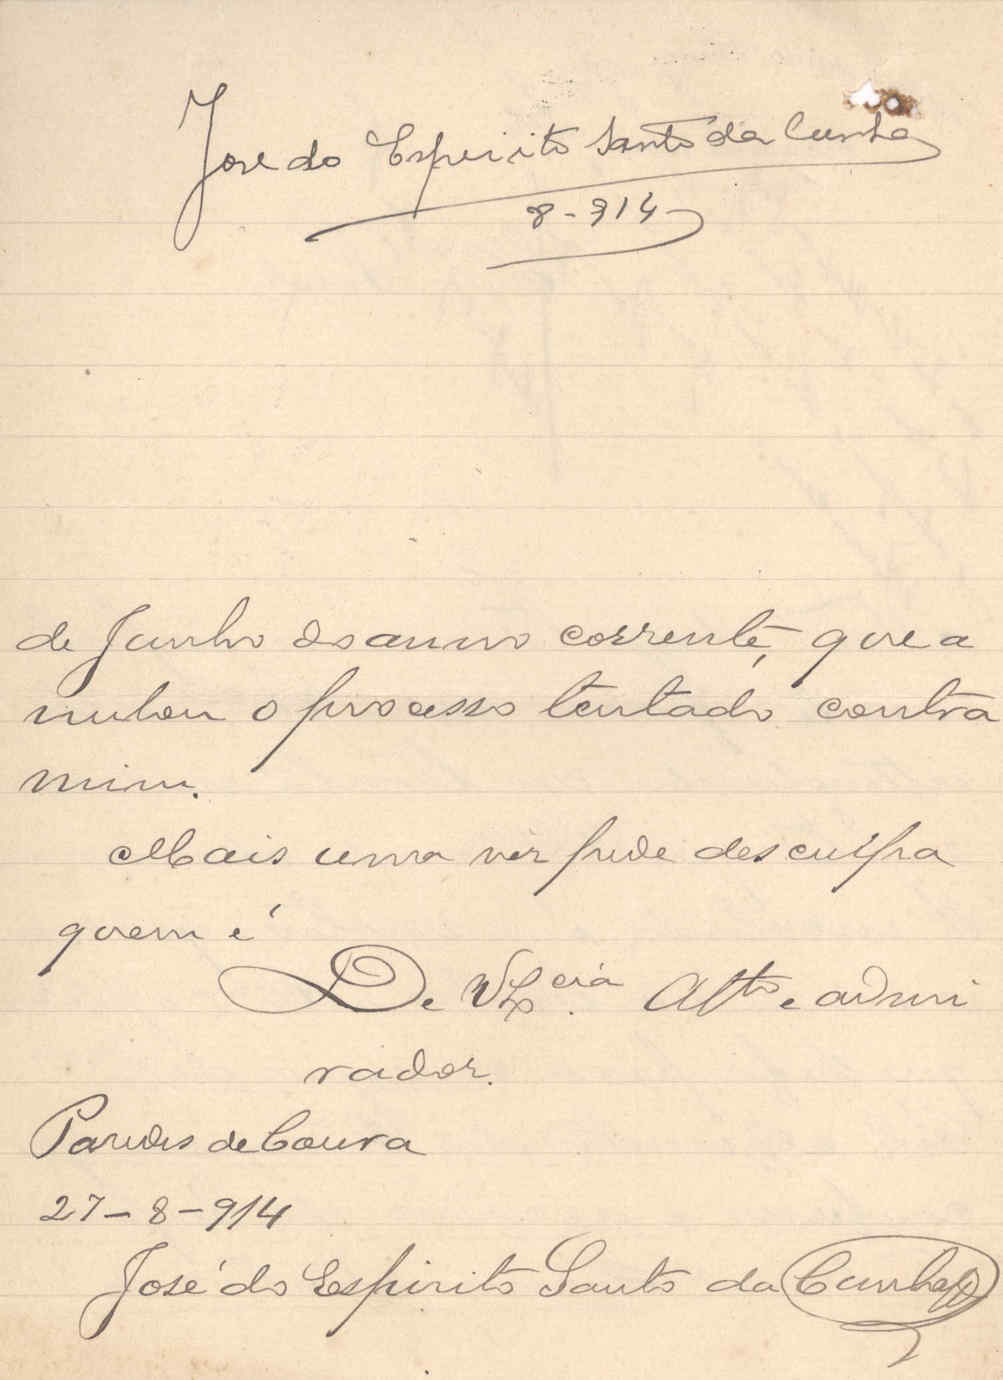 José do Espirito Santo da Cunha
8-914
de Junho do anno corrente, que a
nulou o processo tentado contra
mim.
Mais uma vez pede desculpa
quem é
De V Ex.cia Att.to e admi
rador.
Paredes de Coura
27-8-914
José do Espirito Santo da Cunha